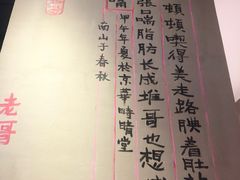 頓頓喫得美走路腆着肚
張喘脂肪长成堆哥也想
嗝
甲午年夏於京華時晴堂
南山子春秋
老哥